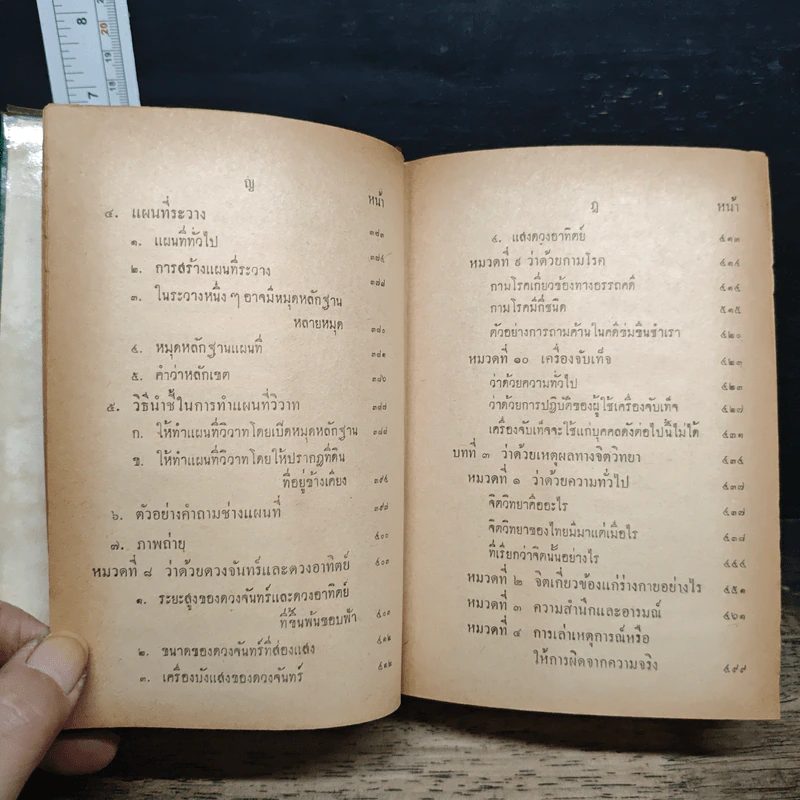 8
20
19
18
7
ญ
หน้า
๔. แผนที่ระวาง ๓๘๓
๑. แผนที่ทั่วไป
๒. การสร้างแผนที่ระวาง
๓. ในระวางหนึ่ง ๆ อาจมีหมุดหลักฐาน
หลายหมุด ๓๘๐
๔. หมุดหลักฐานแผนที่ ๓๘๑
๕. คำว่าหลักเขต ๓๘๖
๕. วิธีนำชี้ในการทำแผนที่วิวาท ๓๘๗
ก. ให้ทำแผนที่วิวาทโดยเปิดหมุดหลักฐาน ๓๘๘
ข. ให้ทำแผนที่วิวาทโดยให้ปรากฏที่ดิน
ที่อยู่ข้างเคียง ๓๙๕
๖. ตัวอย่างคำถามช่างแผนที่ ๓๙๗
๗. ภาพถ่าย ๔๐๐
หมวดที่ ๘ ว่าด้วยดวงจันทร์และดวงอาทิตย์ ๔๐๙
๑. ระยะสูงของดวงจันทร์และดวงอาทิตย์
ที่ขึ้นพ้นขอบฟ้า ๔๐๙
๒. ขนาดของดวงจันทร์ที่ส่องแสง ๔๑๒
๓. เครื่องบังแสงของดวงจันทร์ ๔๑๒
ฎ
หน้า
๔. แสงดวงอาทิตย์ ๔๑๓
หมวดที่ ๙ ว่าด้วยกามโรค ๔๑๔
กามโรคเกี่ยวข้องทางอรรถคดี ๔๑๔
กามโรคมีกี่ชนิด ๔๑๕
ตัวอย่างการถามค้านในคดีข่มขืนชำเรา ๔๒๐
หมวดที่ ๑๐ เครื่องจับเท็จ ๔๒๓
ว่าด้วยความทั่วไป ๔๒๓
ว่าด้วยการปฏิบัติของผู้ใช้เครื่องจับเท็จ ๔๒๗
เครื่องจับเท็จจะใช้แก่บุคคลดังต่อไปนี้ไม่ได้ ๔๓๑
บทที่ ๓ ว่าด้วยเหตุผลทางจิตวิทยา ๔๓๕
หมวดที่ ๑ ว่าด้วยความทั่วไป ๔๓๗
จิตวิทยาคืออะไร ๔๓๗
จิตวิทยาของไทยมีมาแต่เมื่อไร ๔๓๘
ที่เรียกว่าจิตนั้นอย่างไร ๔๔๔
หมวดที่ ๒ จิตเกี่ยวข้องแก่ร่างกายอย่างไร ๔๕๑
หมวดที่ ๓ ความสำนึกและอารมณ์ ๔๖๑
หมวดที่ ๔ การเล่าเหตุการณ์หรือ
ให้การผิดจากความจริง ๔๙๙